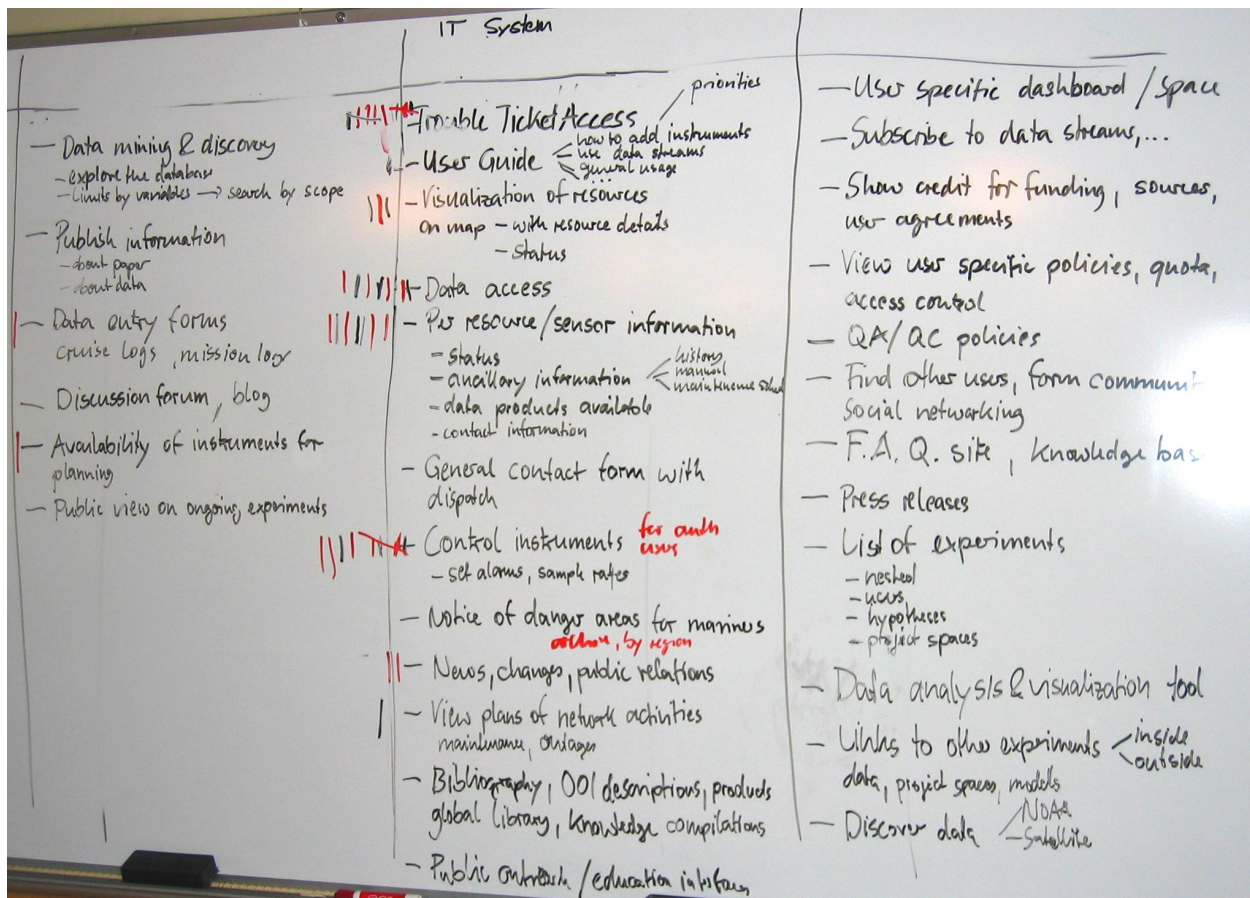 IT System
— Data mining & discovery
- explore the database
- Limits by variables → search by scope
— Publish information
- about paper
- about data
— Data entry forms
cruise logs, mission log
— Discussion forum, blog
— Availability of instruments for
planning
— Public view on ongoing experiments
priorities
- Trouble Ticket Access
- User Guide
how to add instruments
use data streams
general usage
- Visualization of resources
on map - with resource details
- status
- Data access
- Per resource/sensor information
- status
- ancillary information
history
manual
maintenance sched
- data products available
- contact information
- General contact form with
dispatch
- Control instruments for auth
users
- set alarms, sample rates
- Notice of danger areas for mariners
archive, by region
- News, changes, public relations
- View plans of network activities
maintenance, outages
- Bibliography, OOI descriptions, products
global library, knowledge compilations
- Public outreach / education interfaces
— User specific dashboard / space
— Subscribe to data streams,...
— Show credit for funding, sources,
user agreements
— View user specific policies, quota,
access control
— QA/QC policies
— Find other users, form communit
social networking
— F.A.Q. site, knowledge bas
— Press releases
— List of experiments
- nested
- users
- hypotheses
- project spaces
— Data analysis & visualization tool
— Links to other experiments
inside
outside
data, project spaces, models
— Discover data
NOAA
Satellite